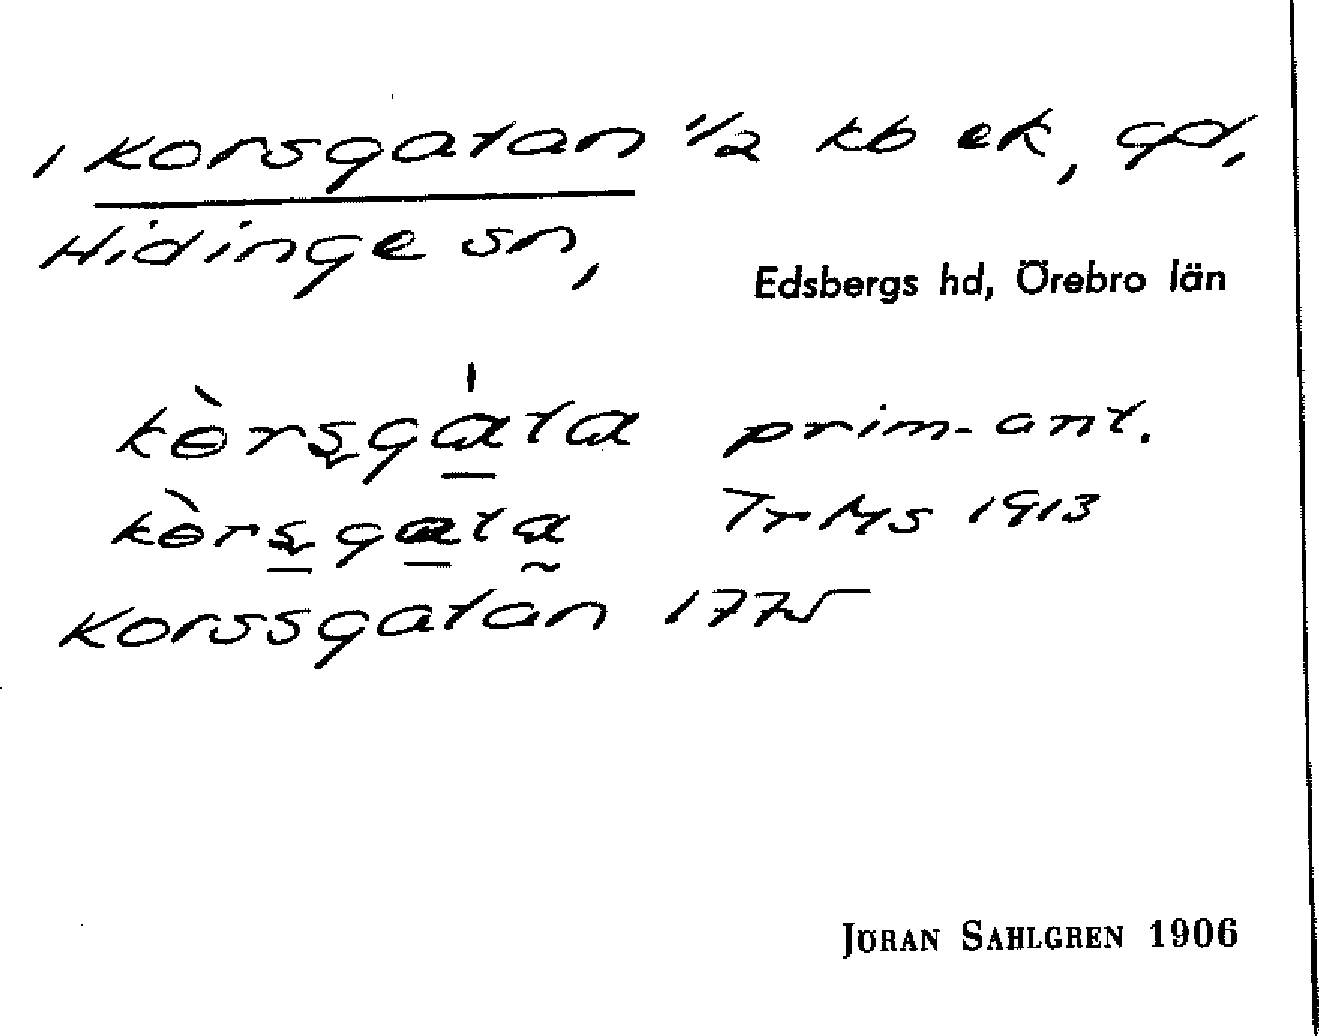 1 Korsgatan 1/2 kb ek, gd,
Hidinge sn,
Edsbergs hd, Örebro län
kɵ̀rsgáta prim-ant.
kɵ̀rsgata TrMs 1913
Korssgatan 1775
JÖRAN SAHLGREN 1906